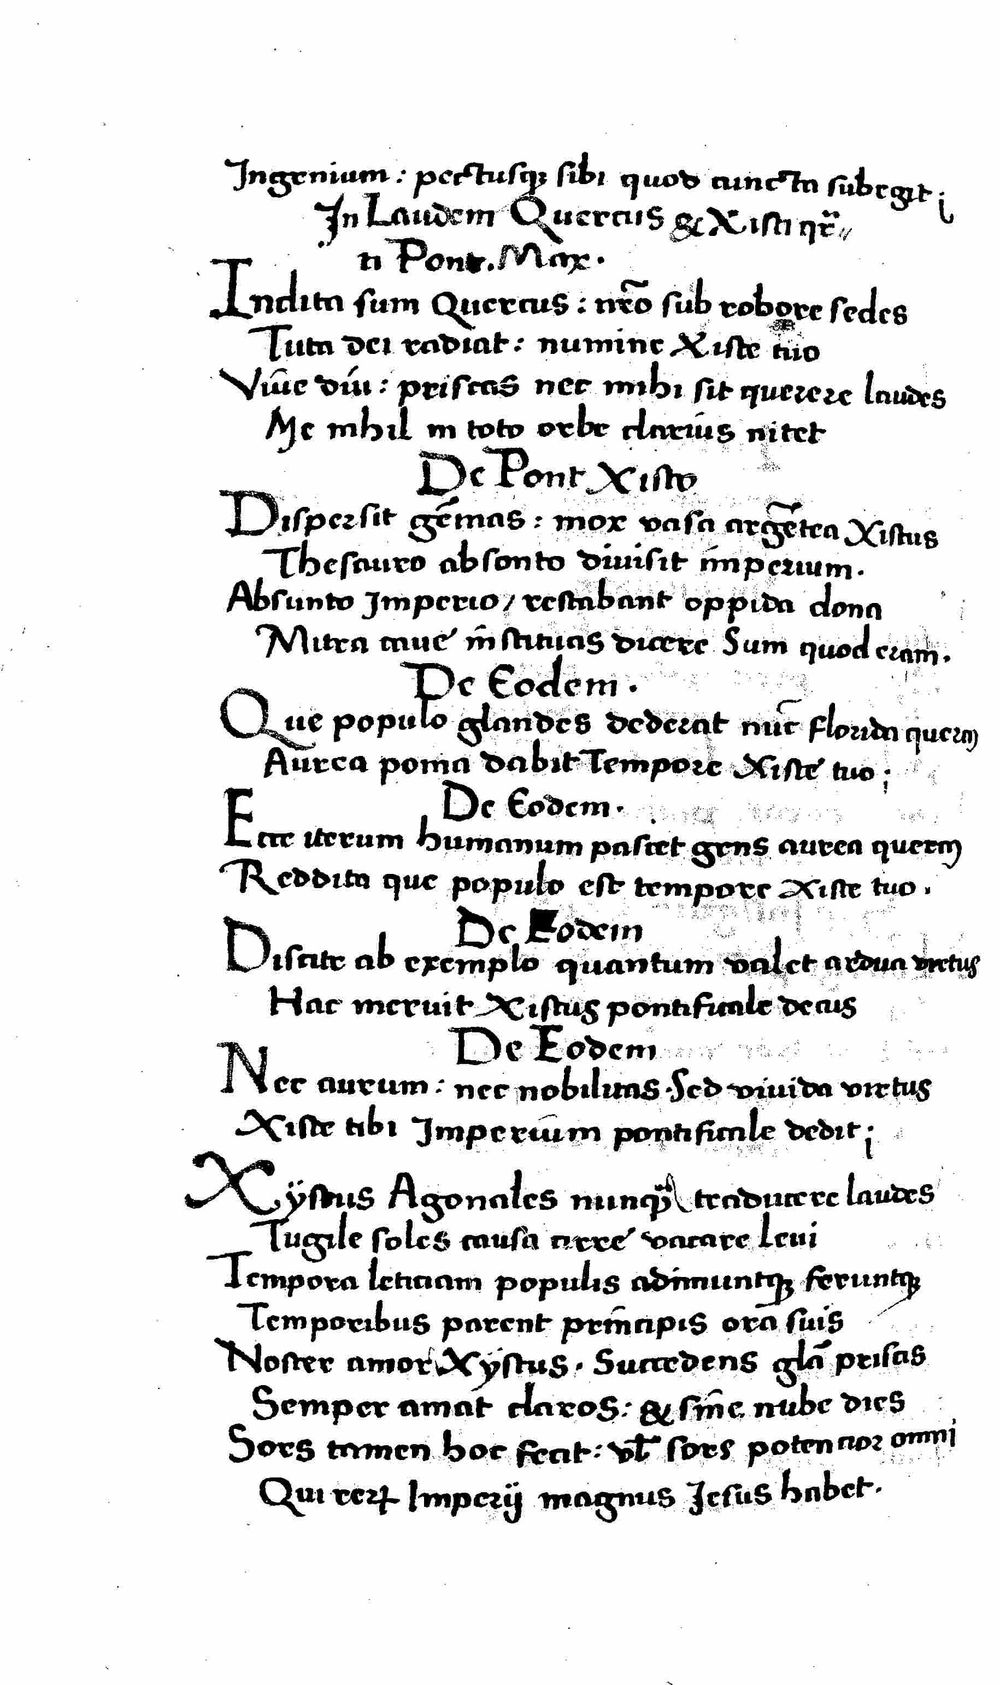 Ingenium: pectusq; sibi quod cuncta subegit;
In Laudem Quercus & Xisti qr̄
ti Pont. Max.
Indita sum Quercus: nr̄o sub robore sedes
Tuta dei radiat: numine Xiste tuo
Viue diu: priscas nec mihi sit querere laudes
Me nihil in toto orbe clarius nitet
De Pont Xisto
Dispersit gēmas: mox vasa argētea Xistus
Thesauro absonto diuisit imperium.
Absunto Imperio/ restabant oppida dona
Mitra caue instituas dicere Sum quod eram.
De Eodem.
Que populo glandes dederat nūc florida quercꝰ
Aurea poma dabit Tempore Xiste tuo;
De Eodem.
Ecce iterum humanum pascet gens aurea quercꝰ
Reddita que populo est tempore Xiste tuo.
De Eodem
Discite ab exemplo quantum valet ardua virtus
Hac meruit Xistus pontificale decus
De Eodem
Nec aurum: nec nobilitas. Sed viuida virtus
Xiste tibi Imperium pontificale dedit;
Xÿstus Agonales nunqꝫ traducere laudes
Tugile soles causa carre vacare leui
Tempora leticiam populis adimuntq; feruntq;
Temporibus parent principis ora suis
Noster amor Xÿstus. Succedens glā priscas
Semper amat claros: & sine nube dies
Sors tamen hoc fecit: vl̄ sors potencior omni
Qui rerꝝ Imperij magnus Jesus habet.